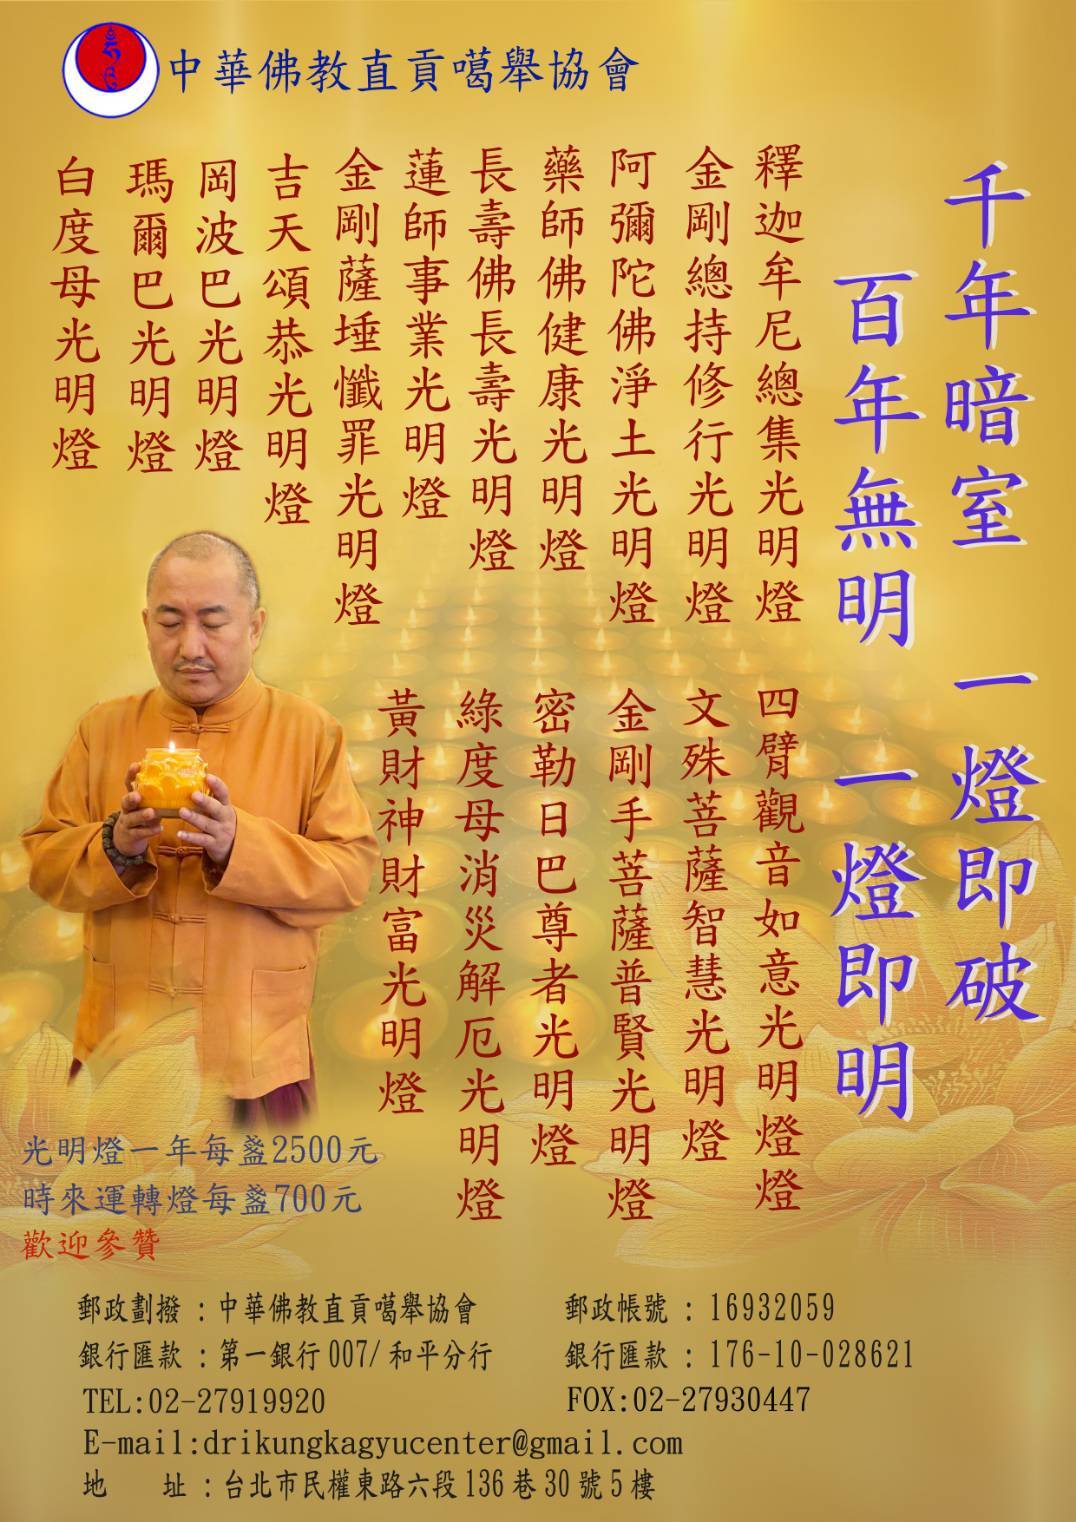 中華佛教直貢噶舉協會
千年暗室 一燈即破
百年無明 一燈即明
釋迦牟尼總集光明燈
金剛總持修行光明燈
阿彌陀佛淨土光明燈
藥師佛健康光明燈
長壽佛長壽光明燈
蓮師事業光明燈
金剛薩埵懺罪光明燈
吉天頌恭光明燈
岡波巴光明燈
瑪爾巴光明燈
白度母光明燈
四臂觀音如意光明燈燈
文殊菩薩智慧光明燈
金剛手菩薩普賢光明燈
密勒日巴尊者光明燈
綠度母消災解厄光明燈
黃財神財富光明燈
光明燈一年每盞2500元
時來運轉燈每盞700元
歡迎參贊
郵政劃撥 : 中華佛教直貢噶舉協會
郵政帳號 : 16932059
銀行匯款 : 第一銀行 007/ 和平分行
銀行匯款 : 176-10-028621
TEL:02-27919920
FOX:02-27930447
E-mail:drikungkagyucenter@gmail.com
地 址 : 台北市民權東路六段 136 巷 30 號 5 樓